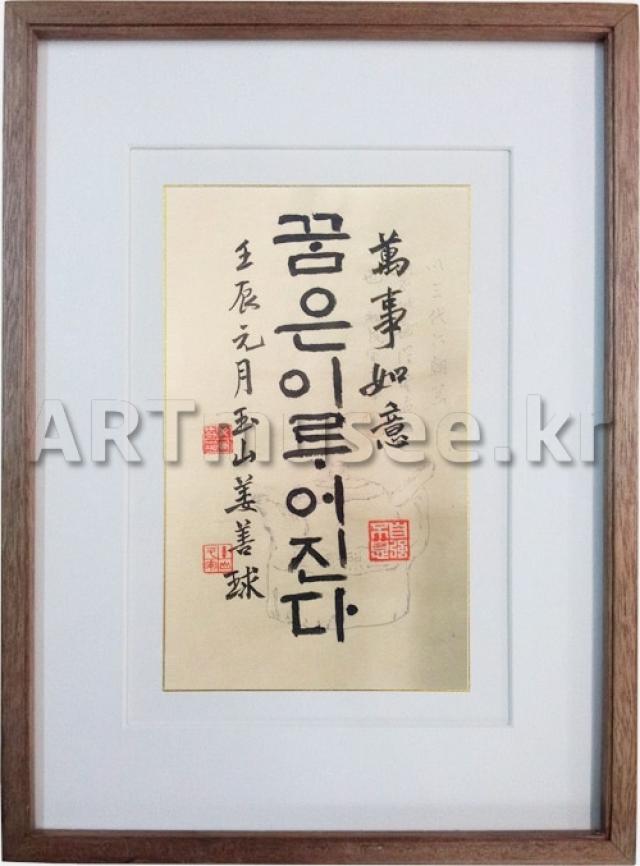 萬事如意
꿈은이루어진다
壬辰元月玉山姜善球
自強不息
ARTmusee.kr